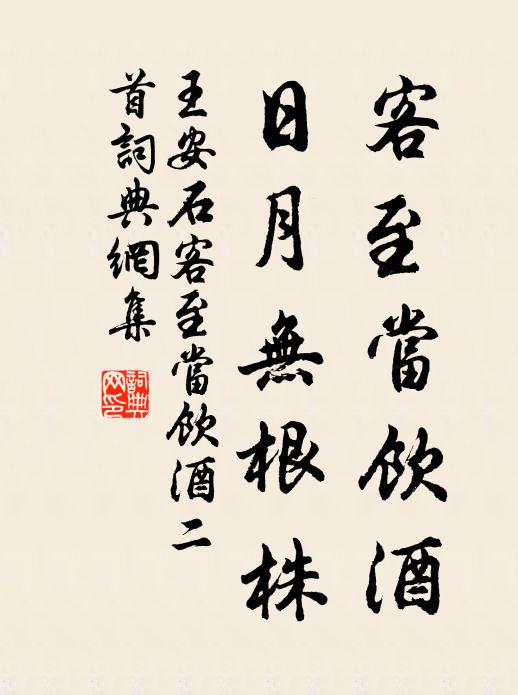 客至當飲酒
日月無根株
王安石客至當飲酒二
首詞典網集
詞典
网印